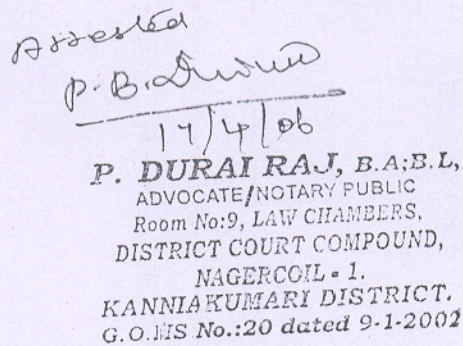 Attested
17/4/06
P. DURAI RAJ, B.A;B.L,
ADVOCATE/NOTARY PUBLIC
Room No:9, LAW CHAMBERS,
DISTRICT COURT COMPOUND,
NAGERCOIL - 1.
KANNIAKUMARI DISTRICT.
G.O.MS No.:20 dated 9-1-2002